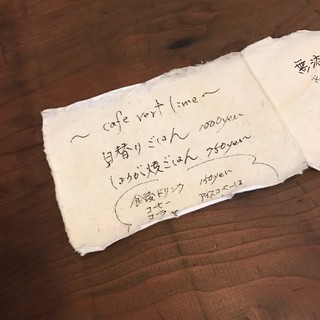 ~ cafe rest time ~
日替りごはん 1000yen
しょうが焼ごはん 750yen
食後ドリンク 150yen
コーヒー アイスコーヒーは
コーラ
無